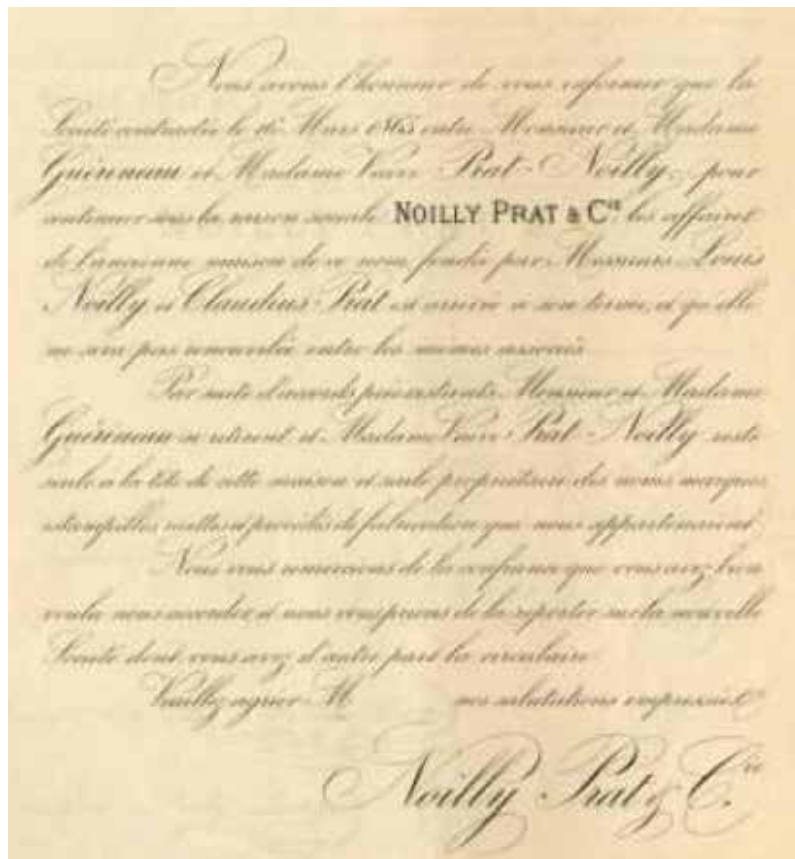 Nous avons l'honneur de vous informer que la
Société contractée le 16 Mars 1865 entre Monsieur et Madame
Guérineau et Madame Veuve Prat-Noilly, pour
continuer sous la raison sociale NOILLY PRAT & Cie les affaires
de l'ancienne maison de ce nom, fondée par Messieurs Louis
Noilly et Claudius Prat est arrivée à son terme, et qu'elle
ne sera pas renouvelée entre les mêmes associés
Par suite d'accords préexistants Monsieur et Madame
Guérineau se retirent et Madame Veuve Prat-Noilly reste
seule à la tête de cette maison et seule propriétaire des noms, marques
estampilles recettes et procédés de fabrication que nous appartenaient
Nous vous remercions de la confiance que vous avez bien
voulu nous accorder, et nous vous prions de la reporter sur la nouvelle
Société dont vous avez d'autre part la circulaire
Veuillez agréer M nos salutations empressées
Noilly Prat & Cie